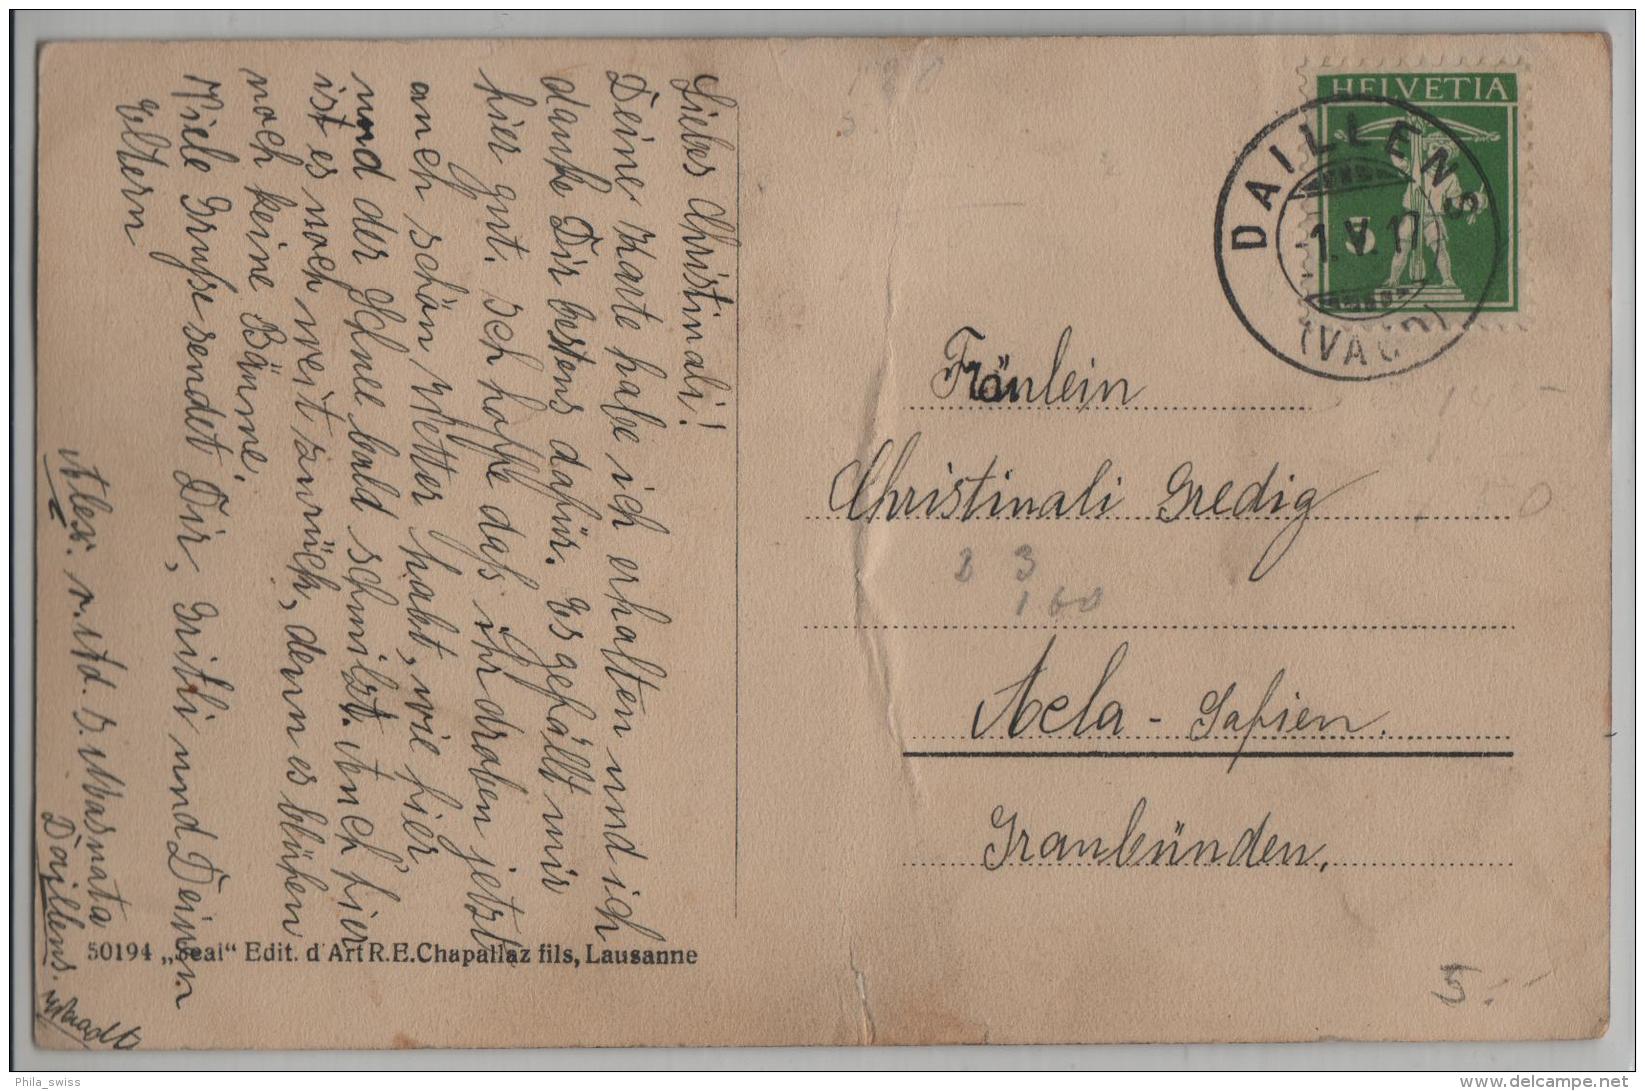 Liebes Christinali!
Deine Karte habe ich erhalten und ich
danke Dir bestens dafür. Es gefällt mir
hier gut. Ich hoffe daß ihr droben jetzt
auch schön Wetter habt, wie hier
und der Schnee bald schmilzt. Auch hier
ist es noch weit zurück, denn es blühen
noch keine Bäume.
Viele Grüße sendet Dir, Gritli und Deinen
Eltern
Alex.
Daillens.
50194 „Seal“ Edit. d'Art R.E. Chapallaz fils, Lausanne
HELVETIA
5
DAILLENS
1.V.17
(VAUD)
Fräulein
Christinali Gredig
2 3
160
Acla - Safien.
Graubünden.
5.-
Phila_swiss
www.delcampe.net